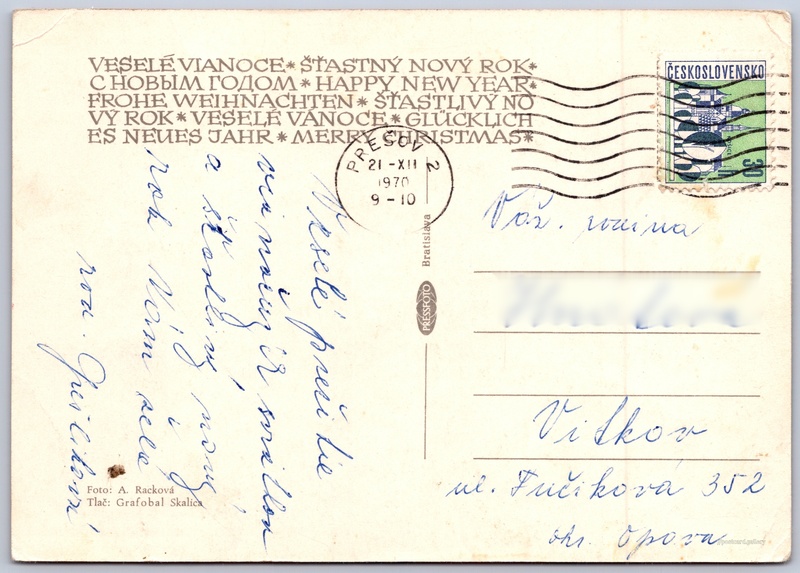 VESELÉ VIANOCE * ŠŤASTNÝ NOVÝ ROK *
С НОВЫМ ГОДОМ * HAPPY NEW YEAR *
FROHE WEIHNACHTEN * ŠŤASTLIVÝ NO
VÝ ROK * VESELÉ VÁNOCE * GLÜCKLICH
ES NEUES JAHR * MERRY CHRISTMAS *
PREŠOV 2
21-XII
1970
9-10
ČESKOSLOVENSKO
30
Veselé prežitie
vianočných sviatkov
a šťastlivý nový
rok Vám želá
rod.
Váž. rodina
Vítkov
ul. Fučíková 352
okr. Opava
Bratislava
PRESSFOTO
Foto: A. Racková
Tlač: Grafobal Skalica